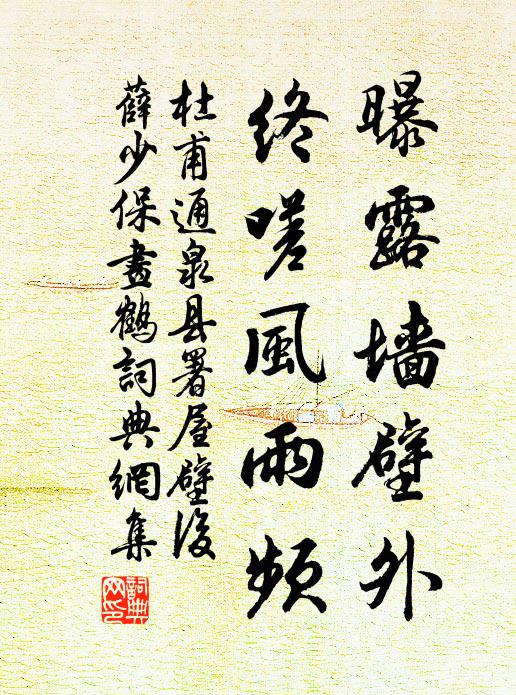 曝露墙壁外
終嗟風雨頻
杜甫通泉县署屋壁後
薛少保畫鶴詞典網集
詞典
网印